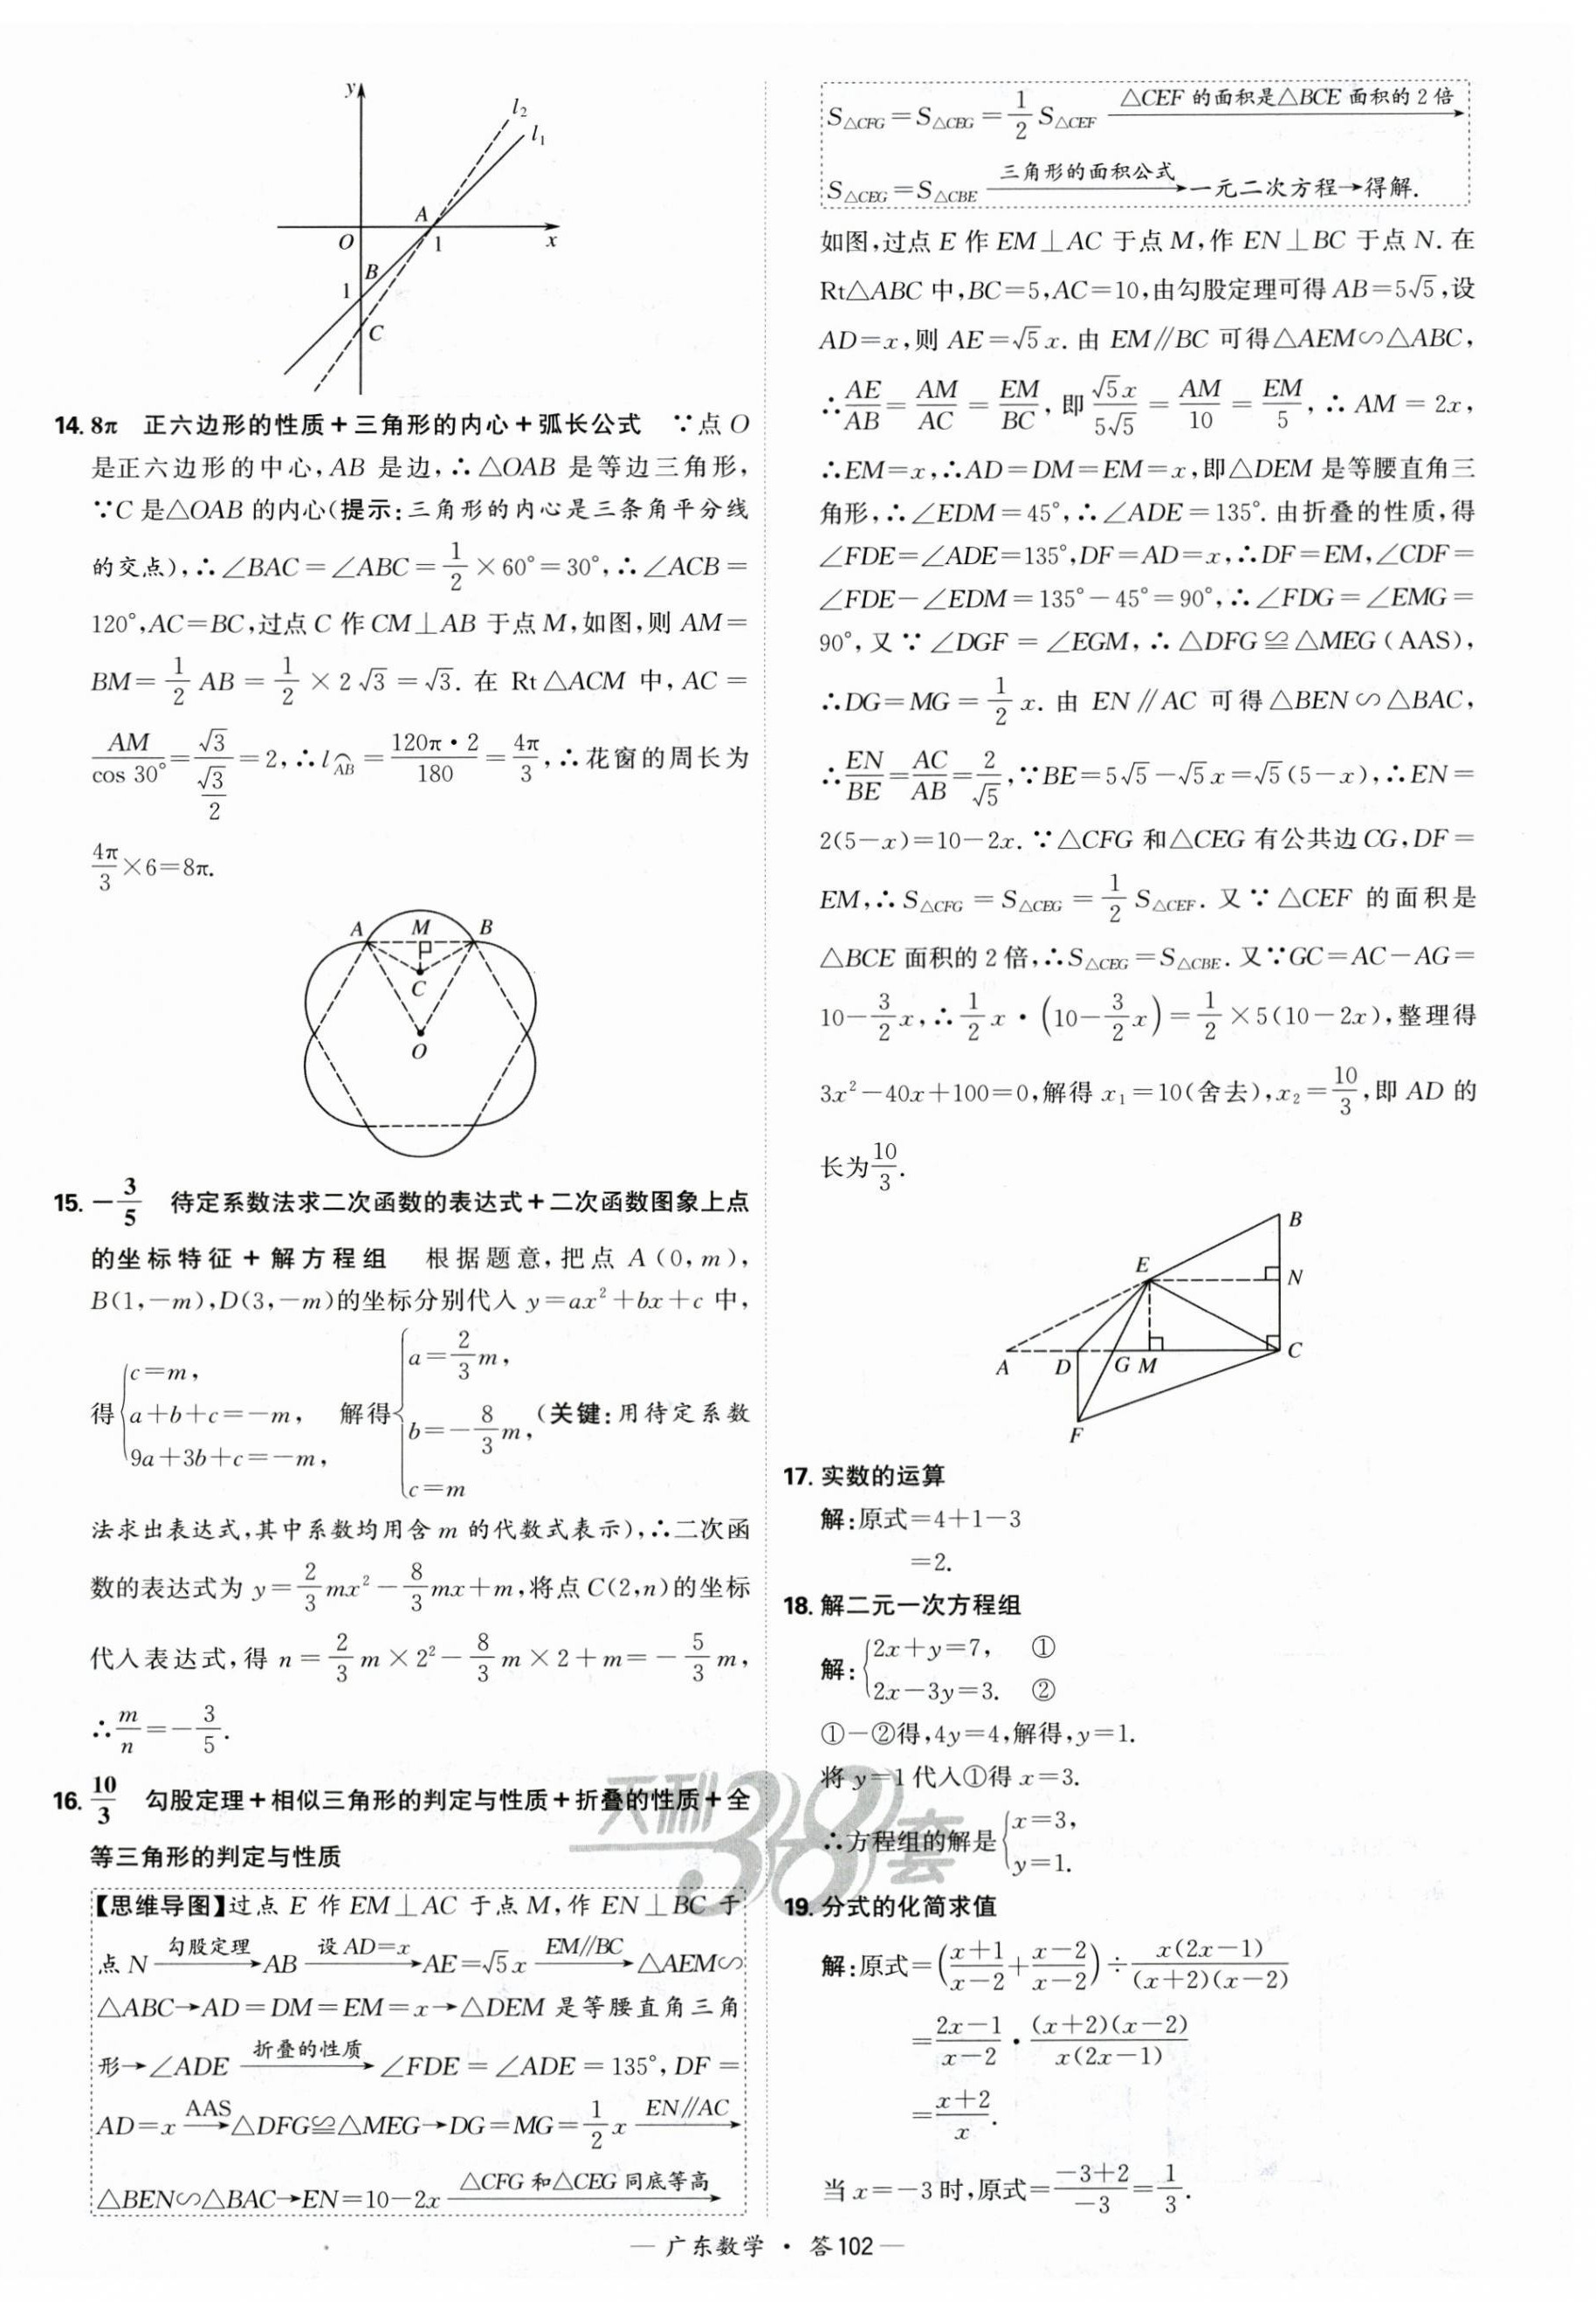 y
l₂
l₁
A
O
1
x
B
1
C
14. 8π 正六边形的性质+三角形的内心+弧长公式 ∵点 O
是正六边形的中心,AB 是边,∴△OAB 是等边三角形,
∵C 是△OAB 的内心(提示:三角形的内心是三条角平分线
的交点),∴∠BAC=∠ABC=1/2×60°=30°,∴∠ACB=
120°,AC=BC,过点 C 作 CM⊥AB 于点 M,如图,则 AM=
BM=1/2 AB=1/2×2√3=√3. 在 Rt△ACM 中,AC=
AM/cos 30°=√3/(√3/2)=2,∴l⌒AB=120π·2/180=4π/3,∴花窗的周长为
4π/3×6=8π.
A M B
C
O
15. -3/5 待定系数法求二次函数的表达式+二次函数图象上点
的坐标特征+解方程组 根据题意,把点 A(0,m),
B(1,-m),D(3,-m)的坐标分别代入 y=ax²+bx+c 中,
得{c=m, a+b+c=-m, 9a+3b+c=-m, 解得{a=2/3m, b=-8/3m, c=m (关键:用待定系数
法求出表达式,其中系数均用含 m 的代数式表示),∴二次函
数的表达式为 y=2/3mx²-8/3mx+m,将点 C(2,n)的坐标
代入表达式,得 n=2/3m×2²-8/3m×2+m=-5/3m,
∴m/n=-3/5.
16. 10/3 勾股定理+相似三角形的判定与性质+折叠的性质+全
等三角形的判定与性质
【思维导图】过点 E 作 EM⊥AC 于点 M,作 EN⊥BC 于
点 N 勾股定理→AB 设 AD=x→AE=√5x EM∥BC→△AEM∽
△ABC→AD=DM=EM=x→△DEM 是等腰直角三角
形→∠ADE 折叠的性质→∠FDE=∠ADE=135°,DF=
AD=x AAS→△DFG≌△MEG→DG=MG=1/2x EN∥AC→
△BEN∽△BAC→EN=10-2x △CFG 和△CEG 同底等高→
S△CFG=S△CEG=1/2 S△CEF △CEF 的面积是△BCE 面积的 2 倍→
S△CEG=S△CBE 三角形的面积公式→一元二次方程→得解.
如图,过点 E 作 EM⊥AC 于点 M,作 EN⊥BC 于点 N. 在
Rt△ABC 中,BC=5,AC=10,由勾股定理可得 AB=5√5,设
AD=x,则 AE=√5x. 由 EM∥BC 可得△AEM∽△ABC,
∴AE/AB=AM/AC=EM/BC,即√5x/5√5=AM/10=EM/5,∴AM=2x,
∴EM=x,∴AD=DM=EM=x,即△DEM 是等腰直角三
角形,∴∠EDM=45°,∴∠ADE=135°. 由折叠的性质,得
∠FDE=∠ADE=135°,DF=AD=x,∴DF=EM,∠CDF=
∠FDE-∠EDM=135°-45°=90°,∴∠FDG=∠EMG=
90°,又∵∠DGF=∠EGM,∴△DFG≌△MEG(AAS),
∴DG=MG=1/2x. 由 EN∥AC 可得△BEN∽△BAC,
∴EN/BE=AC/AB=2/√5,∵BE=5√5-√5x=√5(5-x),∴EN=
2(5-x)=10-2x. ∵△CFG 和△CEG 有公共边 CG,DF=
EM,∴S△CFG=S△CEG=1/2 S△CEF. 又∵△CEF 的面积是
△BCE 面积的 2 倍,∴S△CEG=S△CBE. 又∵GC=AC-AG=
10-3/2x,∴1/2x·(10-3/2x)=1/2×5(10-2x),整理得
3x²-40x+100=0,解得 x₁=10(舍去),x₂=10/3,即 AD 的
长为10/3.
B
E
N
A D G M C
F
17. 实数的运算
解:原式=4+1-3
=2.
18. 解二元一次方程组
解:{2x+y=7, ①
2x-3y=3. ②
①-②得,4y=4,解得,y=1.
将 y=1 代入①得 x=3.
∴方程组的解是{x=3, y=1.
19. 分式的化简求值
解:原式=((x+1)/(x-2)+(x-2)/(x-2))÷x(2x-1)/((x+2)(x-2))
=(2x-1)/(x-2)·(x+2)(x-2)/(x(2x-1))
=(x+2)/x.
当 x=-3 时,原式=(-3+2)/(-3)=1/3.
天利38套
— 广东数学 · 答102 —